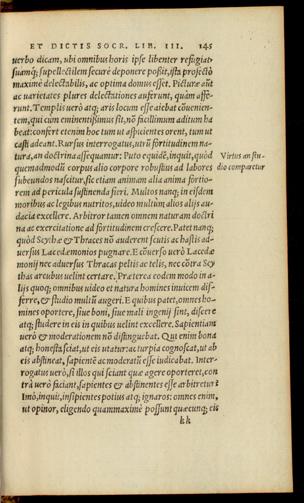 ET DICTIS SOCR. LIB. III. 145
uerbo dicam, ubi omnibus horis ipse libenter refugiat,
suamq; supellectilem securè deponere poßit, ista profectò
maximè delectabilis, ac optima domus esset. Picturæ aūt
ac uarietates plures delectationes auferunt, quàm affe-
runt. Templis uerò atq; aris locum esse aiebat cōuenien-
tem, qui cùm eminentißimus sit, nō facillimum aditum ha
beat: confert etenim hoc tum ut aspicientes orent, tum ut
casti adeant. Rursus interrogatus, utrū fortitudinem na-
tura, an doctrina assequamur: Puto equidē, inquit, quòd
quemadmodū corpus alio corpore robustius ad labores
subeundos nascitur, sic etiam animam alia anima fortio-
rem ad pericula sustinenda fieri. Multos nanq; in eisdem
moribus ac legibus nutritos, uideo multùm alios alijs au-
dacia excellere. Arbitror tamen omnem naturam doctri
na ac exercitatione ad fortitudinem crescere. Patet nanq;
quòd Scythæ & Thraces nō auderent scutis ac hastis ad-
uersus Lacedæmonios pugnare. E cōuerso uerò Lacedæ
monij nec aduersus Thracas peltis ac telis, nec cōtra Scy
thas arcubus uelint certare. Præterea eodem modo in a-
lijs quoq; omnibus uideo et natura homines inuicem dif-
ferre, & studio multū augeri. E quibus patet, omnes ho-
mines oportere, siue boni, siue mali ingenij sint, discere
atq; studere in eis in quibus uelint excellere. Sapientiam
uerò & moderationem nō distinguebat. Qui enim bona
atq; honesta sciat, ut eis utatur: ac turpia cognoscat, ut ab
eis abstineat, sapientē ac moderatū esse iudicabat. Inter-
rogatus uerò, si illos qui sciant quæ agere oporteret, con
trà uerò faciant, sapientes & abstinentes esse arbitretur:
Imò, inquit, insipientes potius atq; ignaros: omnes enim,
ut opinor, eligendo quammaximè possunt quæcunq; eis
kk
Virtus an stu-
dio comparetur